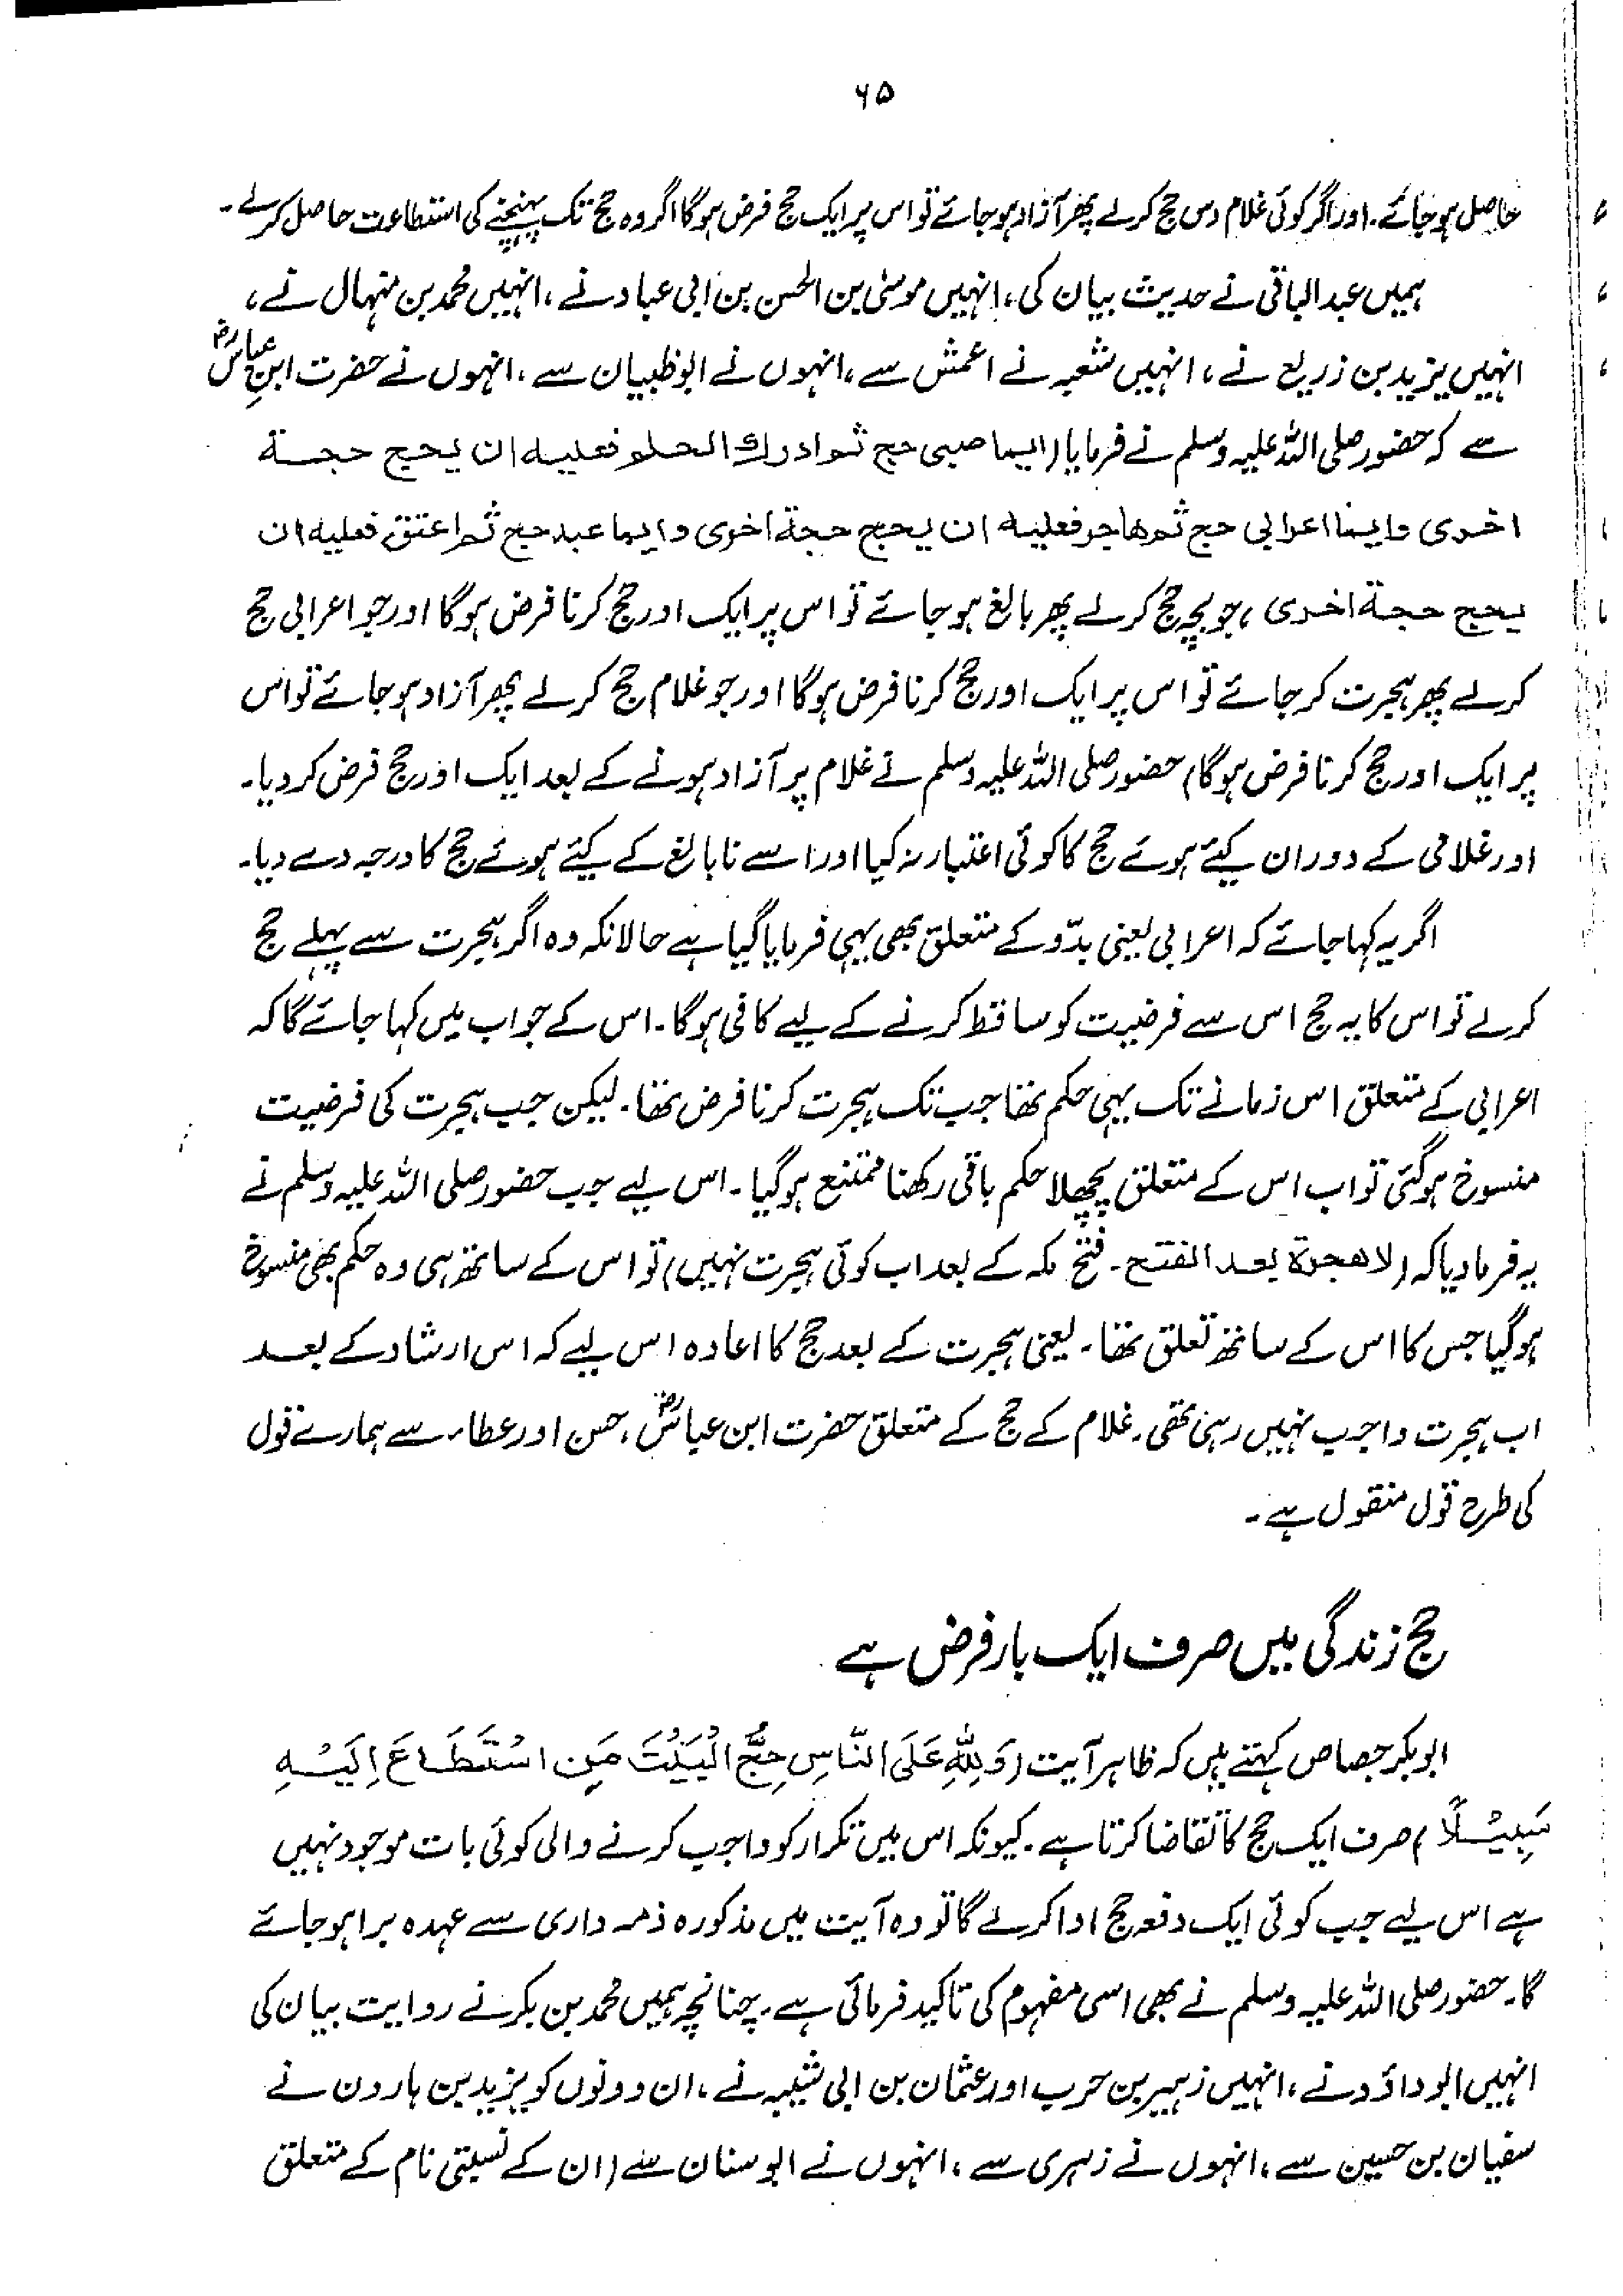 ۶۵
حاصل ہو جائے۔ اور اگر کوئی غلام دس حج کرلے پھر آزاد ہو جائے تو اس پر ایک حج فرض ہوگا اگر وہ حج تک پہنچنے کی استطاعت حاصل کرلے۔
ہمیں عبدالباقی نے حدیث بیان کی، انہیں موسیٰ بن الحسن بن ابی عباد نے، انہیں محمد بن منہال نے،
انہیں یزید بن زریع نے، انہیں شعبہ نے اعمش سے، انہوں نے ابوظبیان سے، انہوں نے حضرت ابنِ عباسؓ
سے کہ حضور صلی اللہ علیہ وسلم نے فرمایا (ایما صبی حج ثم ادرک الحلم فعلیہ ان یحج حجۃ
اخری وایما اعرابی حج ثم ھاجر فعلیہ ان یحج حجۃ اخری وایما عبد حج ثم اعتق فعلیہ ان
یحج حجۃ اخری، جو بچہ حج کرلے پھر بالغ ہو جائے تو اس پر ایک اور حج کرنا فرض ہوگا اور جو اعرابی حج
کرلے پھر ہجرت کر جائے تو اس پر ایک اور حج کرنا فرض ہوگا اور جو غلام حج کرلے پھر آزاد ہو جائے تو اس
پر ایک اور حج کرنا فرض ہوگا) حضور صلی اللہ علیہ وسلم نے غلام پر آزاد ہونے کے بعد ایک اور حج فرض کر دیا۔
اور غلامی کے دوران کیئے ہوئے حج کا کوئی اعتبار نہ کیا اور اسے نابالغ کے کیئے ہوئے حج کا درجہ دے دیا۔
اگر یہ کہا جائے کہ اعرابی یعنی بدّو کے متعلق بھی یہی فرمایا گیا ہے حالانکہ وہ اگر ہجرت سے پہلے حج
کرلے تو اس کا یہ حج اس سے فرضیت کو ساقط کرنے کے لیے کافی ہوگا۔ اس کے جواب میں کہا جائے گا کہ
اعرابی کے متعلق اس زمانے تک یہی حکم تھا جب تک ہجرت کرنا فرض تھا۔ لیکن جب ہجرت کی فرضیت
منسوخ ہوگئی تو اب اس کے متعلق پچھلا حکم باقی رکھنا ممتنع ہوگیا۔ اس لیے جب حضور صلی اللہ علیہ وسلم نے
یہ فرما دیا کہ (لا ھجرۃ بعد الفتح۔ فتح مکہ کے بعد اب کوئی ہجرت نہیں) تو اس کے ساتھ ہی وہ حکم بھی منسوخ
ہوگیا جس کا اس کے ساتھ تعلق تھا۔ یعنی ہجرت کے بعد حج کا اعادہ اس لیے کہ اس ارشاد کے بعد
اب ہجرت واجب نہیں رہی تھی۔ غلام کے حج کے متعلق حضرت ابن عباسؓ، حسن اور عطاء سے ہمارے قول
کی طرح قول منقول ہے۔
حج زندگی میں صرف ایک بار فرض ہے
ابوبکر جصاص کہتے ہیں کہ ظاہر آیت (وَلِلّٰهِ عَلَى النَّاسِ حِجُّ الْبَيْتِ مَنِ اسْتَطَاعَ اِلَيْهِ
سَبِيْلًا) صرف ایک حج کا تقاضا کرتا ہے۔ کیونکہ اس میں تکرار کو واجب کرنے والی کوئی بات موجود نہیں
ہے اس لیے جب کوئی ایک دفعہ حج ادا کرلے گا تو وہ آیت میں مذکورہ ذمہ داری سے عہدہ برا ہو جائے
گا۔ حضور صلی اللہ علیہ وسلم نے بھی اسی مفہوم کی تاکید فرمائی ہے۔ چنانچہ ہمیں محمد بن بکر نے روایت بیان کی
انہیں ابوداؤد نے، انہیں زہیر بن حرب اور عثمان بن ابی شیبہ نے، ان دونوں کو یزید بن ہارون نے
سفیان بن حسین سے، انہوں نے زہری سے، انہوں نے ابوسنان سے (ان کے نسبتی نام کے متعلق